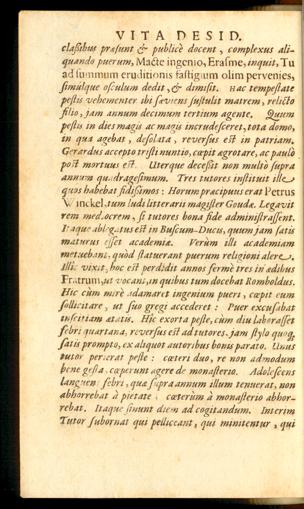 VITA DESID.
classibus præsunt & publicè docent, complexus ali-
quando puerum, Macte ingenio, Erasme, inquit, Tu
ad summum eruditionis fastigium olim pervenies,
simulque osculum dedit, & dimisit. Hac tempestate
pestis vehementer ibi sæviens sustulit matrem, relicto
filio, jam annum decimum tertium agente. Quum
pestis in dies magis ac magis incrudesceret, tota domo,
in qua agebat, desolata, reversus est in patriam.
Gerardus accepto tristi nuntio, cœpit ægrotare, ac paulò
post mortuus est. Uterque decessit non multò supra
annum quadragesimum. Tres tutores instituit ille
quos habebat fidissimos: Horum præcipuus erat Petrus
Winckel, tum ludi litterarii magister Goudæ. Legavit
rem mediocrem, si tutores bona fide administrassent.
Itaque ablegatus est in Buscum-Ducis, quum jam satis
maturus esset academiæ. Verùm illi academiam
metuebant, quòd statuerant puerum religioni alere.
Illic vixit, hoc est perdidit annos fermè tres in ædibus
Fratrum, ut vocant, in quibus tum docebat Romboldus.
Hic cùm mirè adamaret ingenium pueri, cœpit eum
sollicitare, ut suo gregi accederet: Puer excusabat
inscitiam ætatis. Hic exorta peste, cùm diu laborasset
febri quartana, reversus est ad tutores, jam stylo quoque
satis prompto, ex aliquot autoribus bonis parato. Unus
tutor perierat peste: cæteri duo, re non admodum
bene gesta, cœperunt agere de monasterio. Adolescens
languens febri, quæ supra annum illum tenuerat, non
abhorrebat à pietate: cæterùm à monasterio abhor-
rebat. Itaque sinunt diem ad cogitandum. Interim
Tutor subornat qui pelliceant, qui minitentur, qui